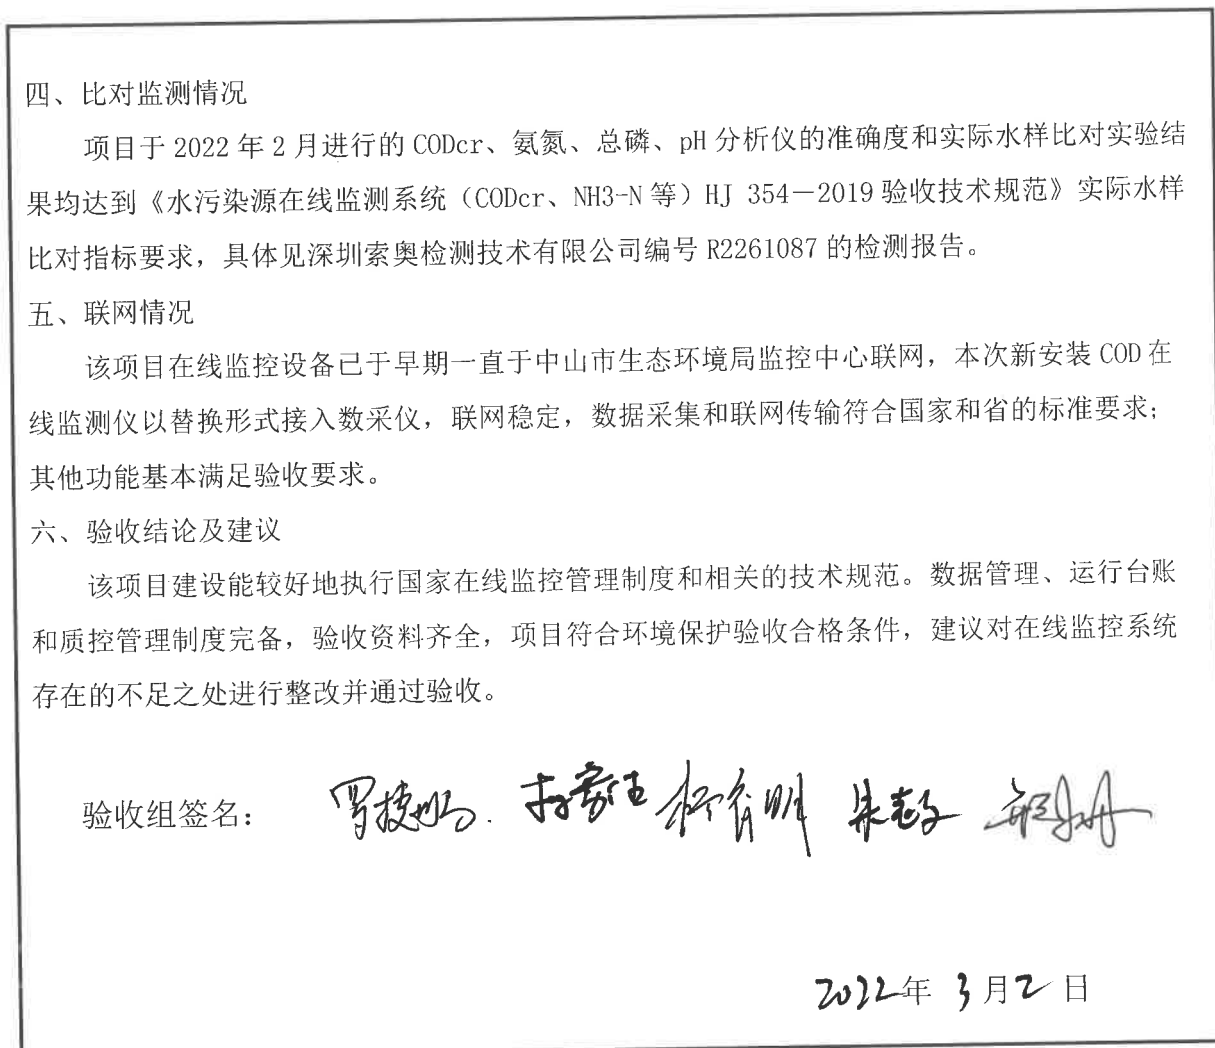 四、比对监测情况
项目于 2022 年 2 月进行的 CODcr、氨氮、总磷、pH 分析仪的准确度和实际水样比对实验结
果均达到《水污染源在线监测系统（CODcr、NH3-N 等）HJ 354—2019 验收技术规范》实际水样
比对指标要求，具体见深圳索奥检测技术有限公司编号 R2261087 的检测报告。
五、联网情况
该项目在线监控设备已于早期一直于中山市生态环境局监控中心联网，本次新安装 COD 在
线监测仪以替换形式接入数采仪，联网稳定，数据采集和联网传输符合国家和省的标准要求；
其他功能基本满足验收要求。
六、验收结论及建议
该项目建设能较好地执行国家在线监控管理制度和相关的技术规范。数据管理、运行台账
和质控管理制度完备，验收资料齐全，项目符合环境保护验收合格条件，建议对在线监控系统
存在的不足之处进行整改并通过验收。
验收组签名：
2022年 3月2日